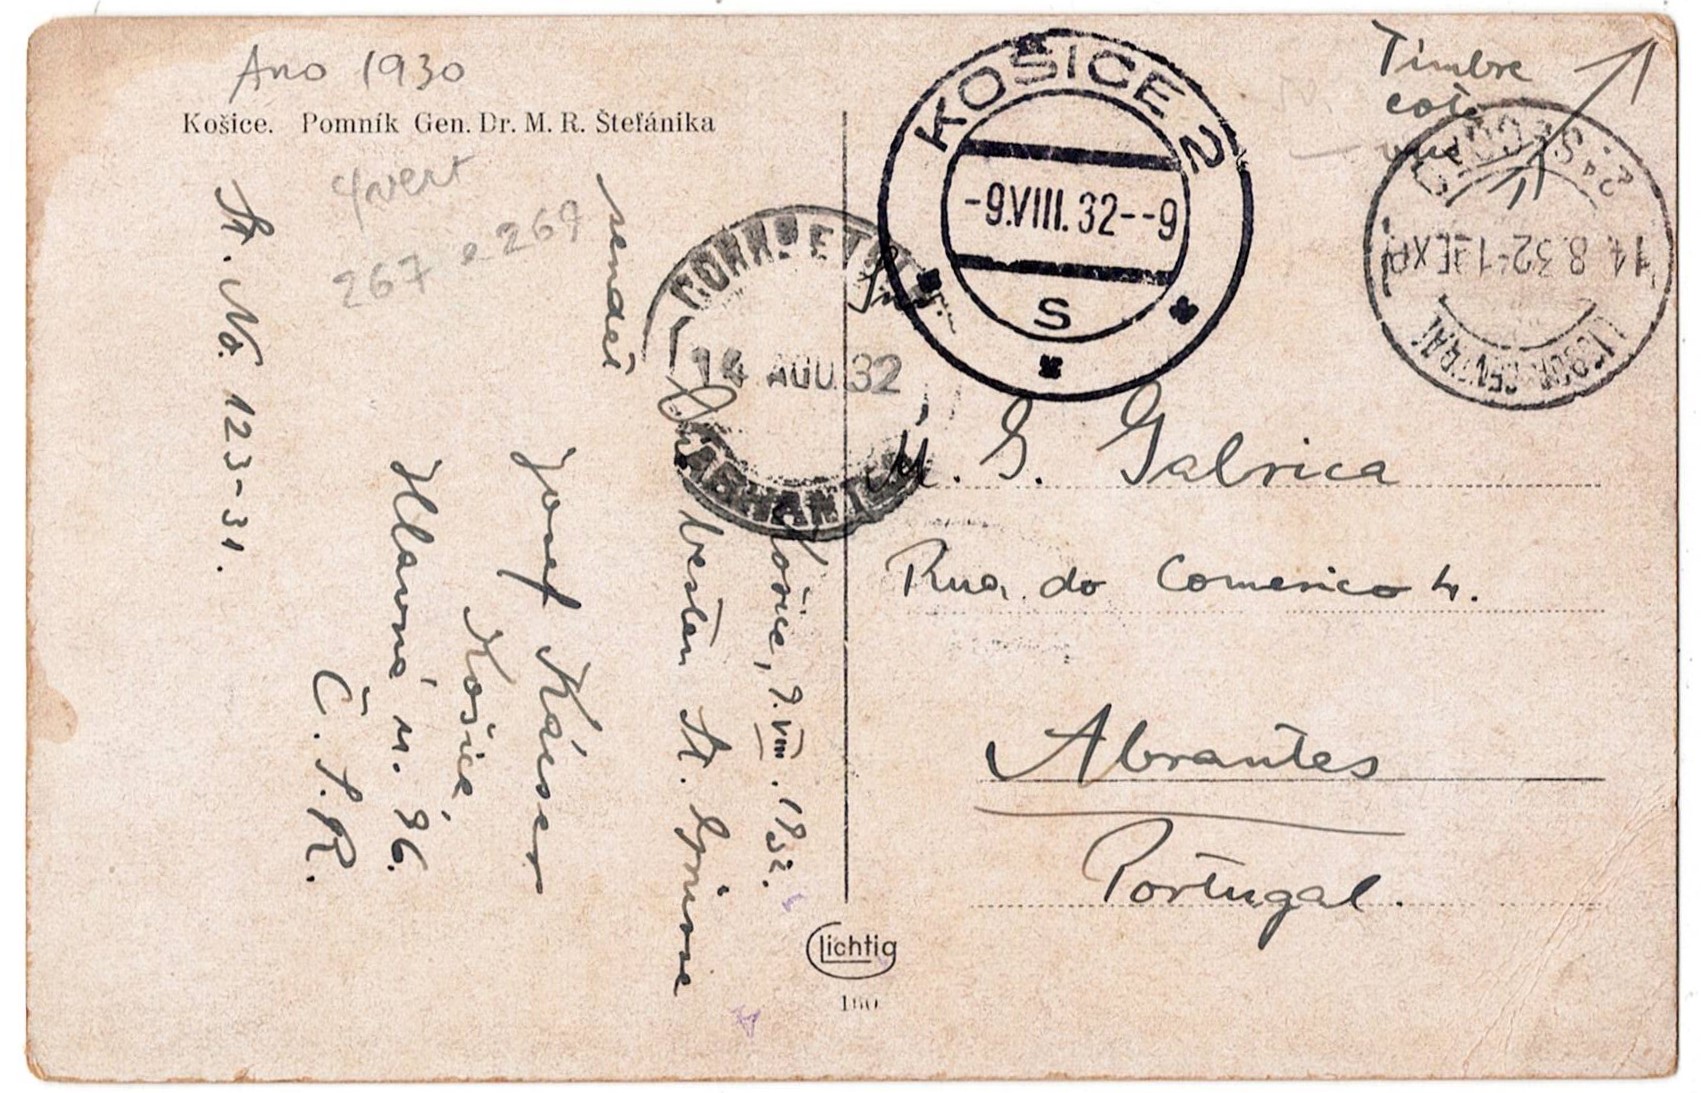 Ano 1930
Košice. Pomník Gen. Dr. M. R. Štefánika
Yvert
267 e 269
Timbre
coté
vue
KOŠICE 2
-9.VIII.32--9
S
2ª SECÇÃO
14.8.32-1 EXP
LISBOA CENTRAL
CORREIO E TEL
14 AGO. 32
ABRANTES
Košice, 9.VIII.1932.
sendas
Josef
Košice
Hlavná n. 96.
Č.S.R.
St. No. 123-31.
M. G. Gabrica
Rua do Comerico 4.
Abrantes
Portugal.
Lichtig
160